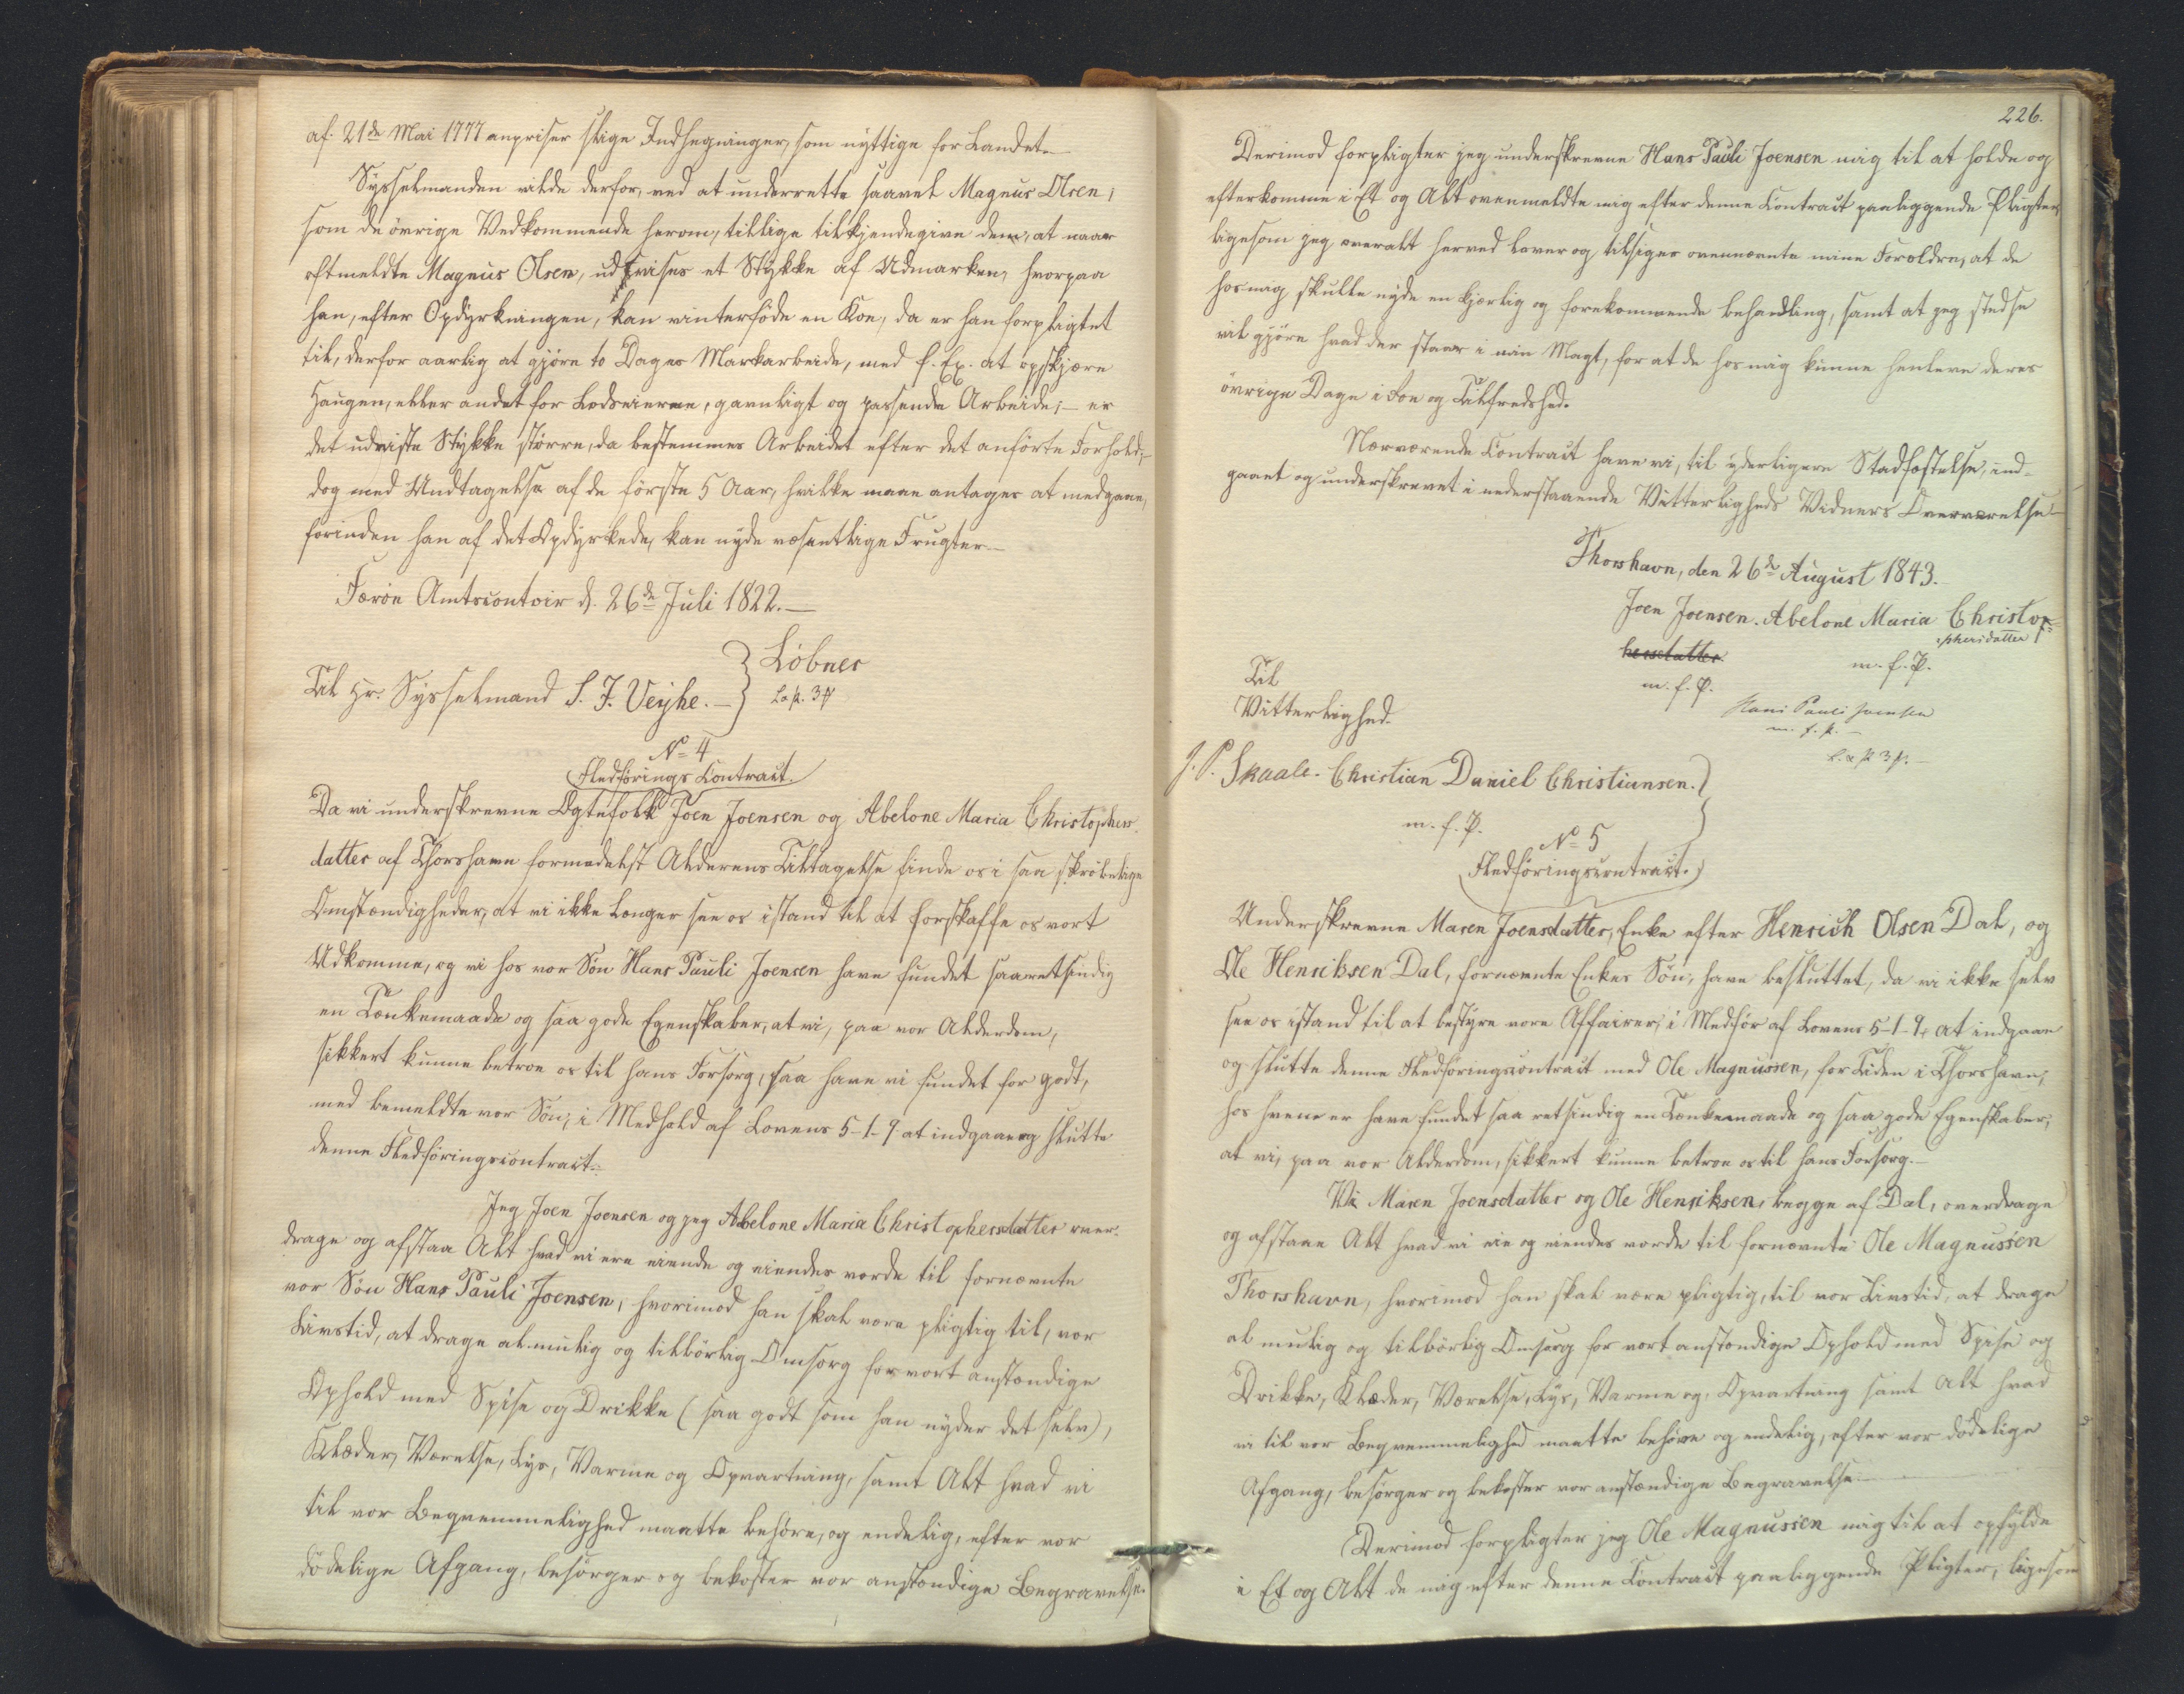 af 21de Mai 1777 anpriser slige Indhegninger, som nyttige for Landet.—
Sysselmanden vilde derfor, ved at underrette saavel Magnus Olsen,
som de øvrige Vedkommende herom, tillige tilkjendegive dem, at naar
oftmeldte Magnus Olsen, udvises et Stykke af Udmarken, hvorpaa
han, efter Opdyrkningen, kan vinterføde en Koe, da er han forpligtet
til, derfor aarlig at gjøre to Dages Markarbeide, med f. Ex. at opskjære
Haugen, eller andet for Lodseierne, gavnligt og passende Arbeide;— er
det udviste Stykke større, da bestemmes Arbeidet efter det anførte Forhold,—
dog med Undtagelse af de første 5 Aar, hvilke maae antages at medgaae,
forinden han af det Opdyrkede, kan nyde væsentlige Frugter.—
Færøe Amtscontoir d. 26de Juli 1822.—
Løbner
Til Hr. Sysselmand S. J. Vejhe.—
No 4
Fledførings Contract.
Da vi underskrevne Ægtefolk Joen Joensen og Abelone Maria Christophers-
datter af Thorshavn formedelst Alderens Tiltagelse finde os i saa skrøbelige
Omstændigheder, at vi ikke længer see os istand til at forskaffe os vort
Udkomme, og vi hos vor Søn Hans Pauli Joensen have fundet saa retsindig
en Tænkemaade og saa gode Egenskaber, at vi, paa vor Alderdom,
sikkert kunne betroe os til hans Forsorg, saa have vi fundet for godt,
med bemeldte vor Søn, i Medhold af Lovens 5-1-9 at indgaae og slutte
denne Fledføringscontract:
Jeg Joen Joensen og jeg Abelone Maria Christophersdatter over-
drage og afstaa Alt hvad vi ere eiende og eiendes vorde til fornævnte
vor Søn Hans Pauli Joensen, hvorimod han skal være pligtig til, vor
Livstid, at drage al mulig og tilbørlig Omsorg for vort anstændige
Ophold med Spise og Drikke (saa godt som han nyder det selv),
Klæder, Værelse, Lys, Varme og Opvartning, samt Alt hvad vi
til vor Beqvemmelighed maatte behøve, og endelig, efter vor
dødelige Afgang, besørger og bekoster vor anstændige Begravelse.
226.
Derimod forpligter jeg underskrevne Hans Pauli Joensen mig til at holde og
efterkomme i Et og Alt ovenmeldte mig efter denne Contract paaliggende Pligter,
ligesom jeg overalt herved lover og tilsiger ovennævnte mine Forældre, at de
hos mig skulle nyde en kjærlig og forekommende Behandling, samt at jeg stedse
vil gjøre hvad der staar i min Magt, for at de hos mig kunne henleve deres
øvrige Dage i Roe og Tilfredshed.
Nærværende Contract have vi, til yderligere Stadfæstelse, ind-
gaaet og underskrevet i nederstaaende Vitterligheds Vidners Overværelse.—
Thorshavn, den 26de August 1843.
Joen Joensen. Abelone Maria Christop-
hersdatter
phersdatter
m. f. P.
m. f. P.
Til
Vitterlighed.
Hans Pauli Joensen
m. f. p.—
J. P. Skaale. Christian Daniel Christiansen.
m. f. P.
No 5
Fledføringscontract.
Underskrevne Maren Joensdatter, Enke efter Henrich Olsen Dal, og
Ole Henriksen Dal, fornævnte Enkes Søn, have besluttet, da vi ikke selv
see os istand til at bestyre vore Affairer, i Medfør af Lovens 5-1-9, at indgaae
og slutte denne Fledføringscontract med Ole Magnussen, for Tiden i Thorshavn,
hos hvem er have fundet saa retsindig en Tænkemaade og saa gode Egenskaber,
at vi, paa vor Alderdom, sikkert kunne betroe os til hans Forsorg.—
Vi Maren Joensdatter og Ole Henriksen, begge af Dal, overdrage
og afstaae Alt hvad vi eie og eiendes vorde til fornævnte Ole Magnussen
Thorshavn, hvorimod han skal være pligtig, til vor Livstid, at drage
al mulig og tilbørlig Omsorg for vort anstændige Ophold med Spise og
Drikke, Klæder, Værelse, Lys, Varme og Opvartning samt Alt hvad
vi til vor Beqvemmelighed maatte behøve og endelig, efter vor dødelige
Afgang, besørger og bekoster vor anstændige Begravelse.—
Derimod forpligter jeg Ole Magnussen mig til at opfylde
i Et og Alt de mig efter denne Contract paaliggende Pligter, ligesom